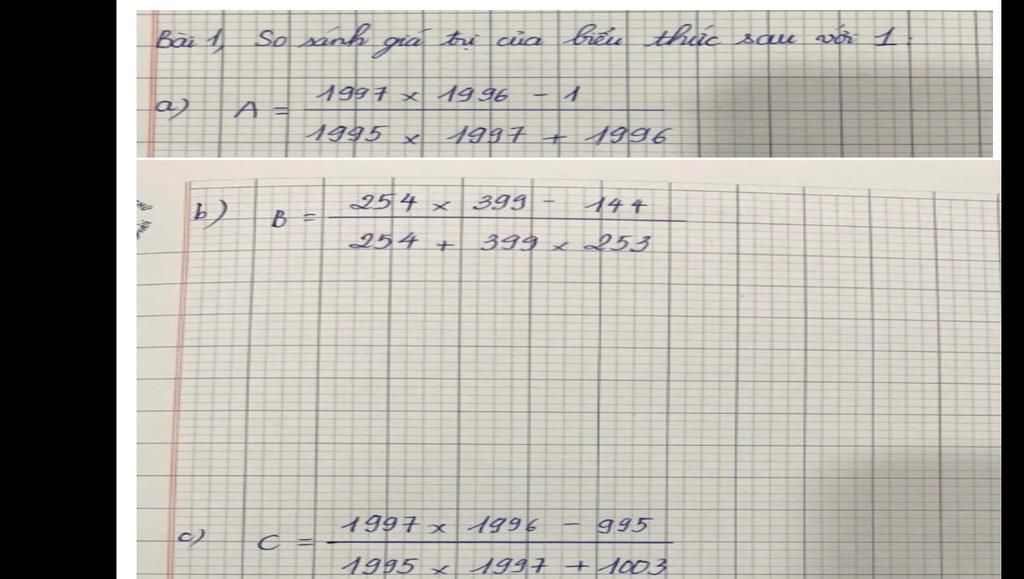 Bài 1, So sánh giá trị của biểu thức sau với 1.
a) A = 1997 x 1996 - 1
1995 x 1997 + 1996
b) B = 254 x 399 - 144
254 + 399 x 253
c) C = 1997 x 1996 - 995
1995 x 1997 + 1003